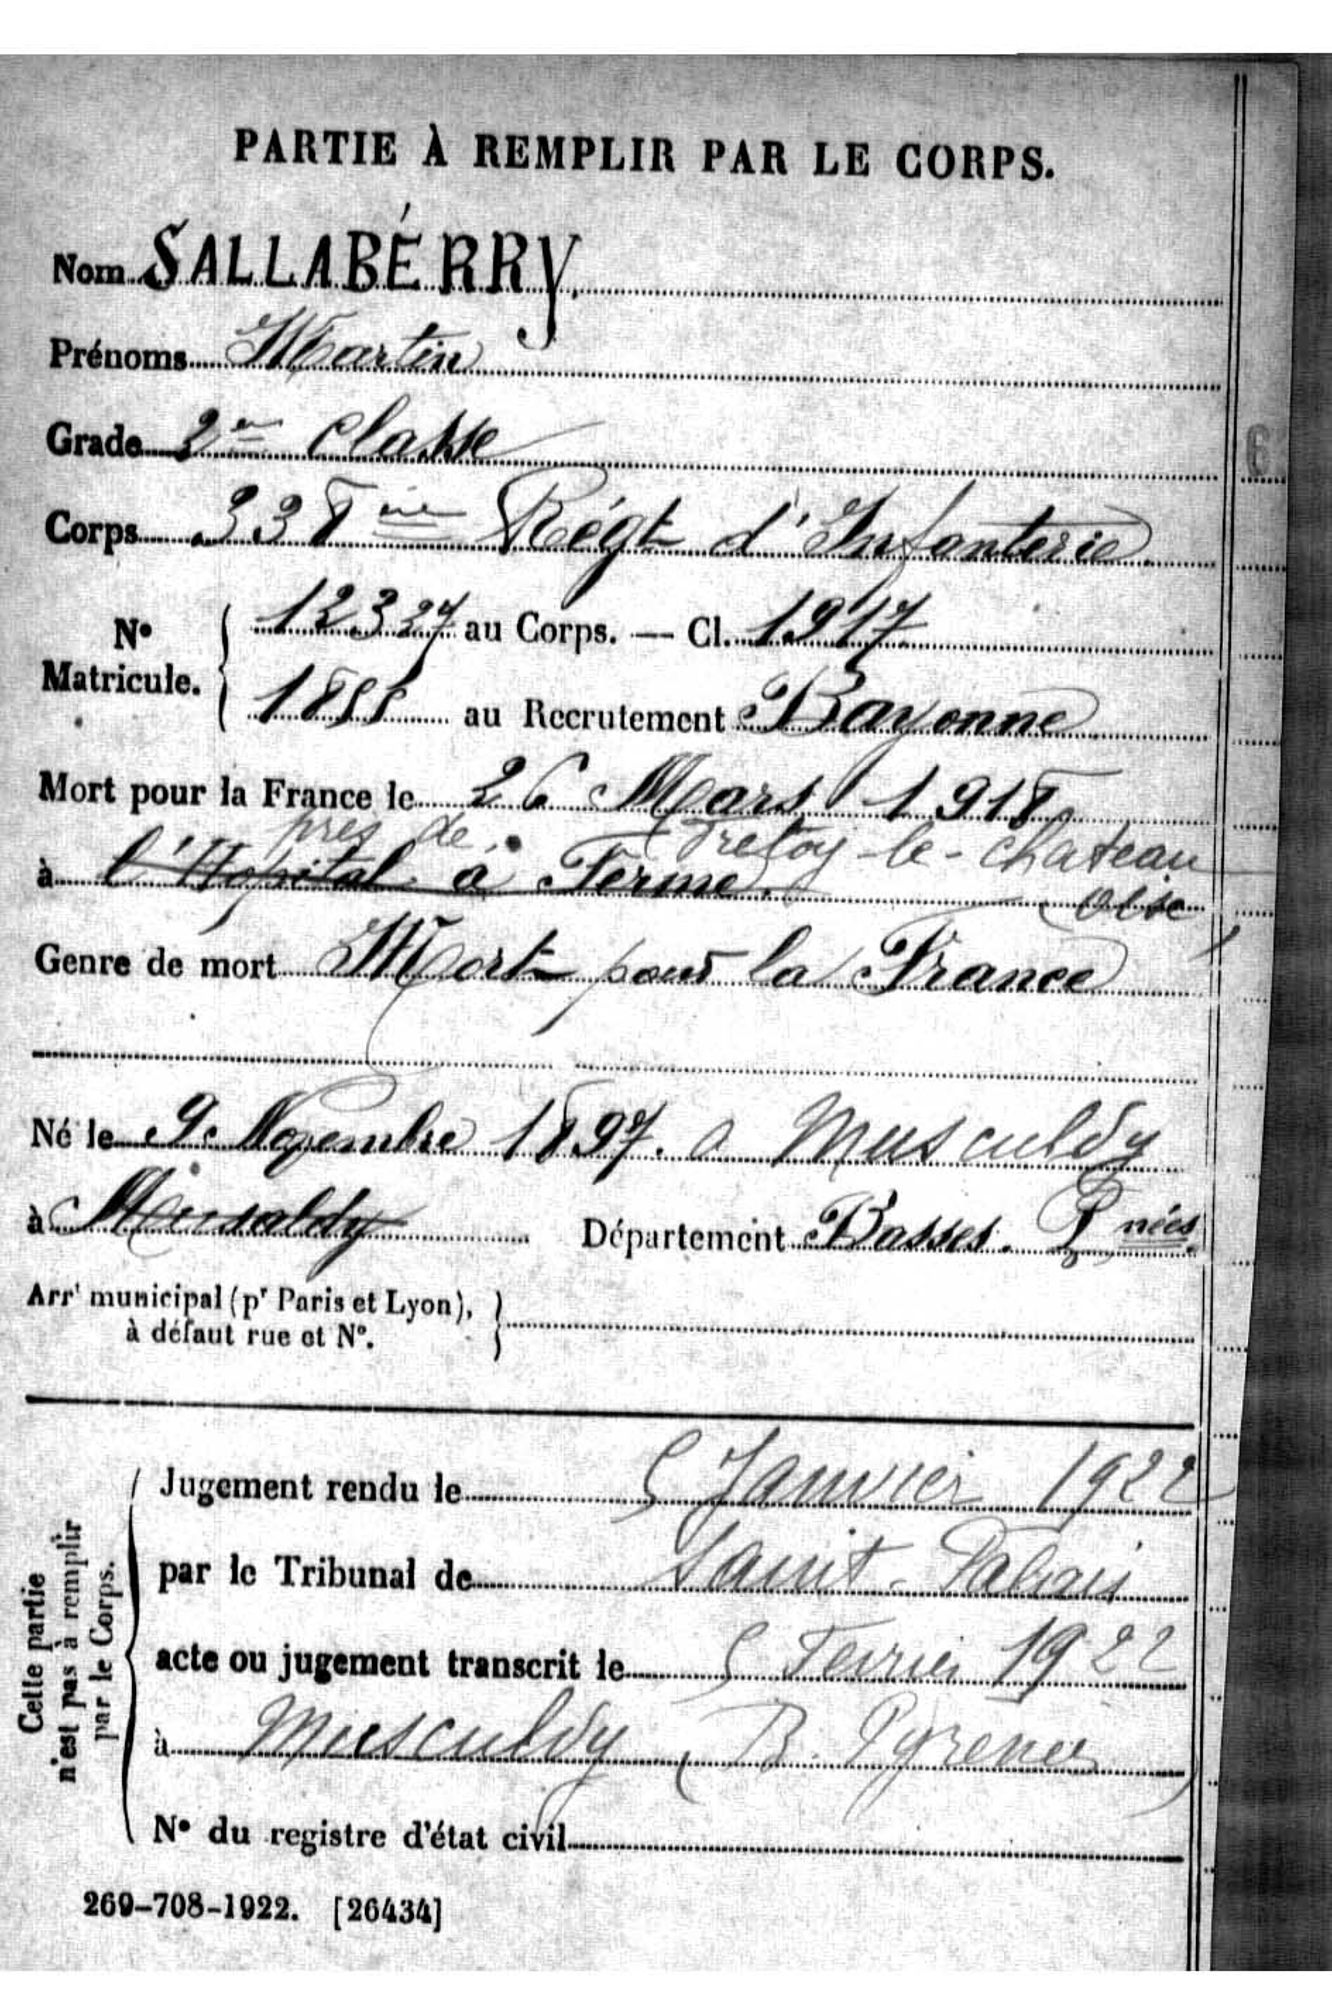 PARTIE À REMPLIR PAR LE CORPS.
Nom SALLABÉRRY
Prénoms Martin
Grade 2me Classe
Corps 338ème Régt d'Infanterie
No Matricule. 12327 au Corps. — Cl. 1917
1855 au Recrutement Bayonne
Mort pour la France le 26 Mars 1918
près de Fretoy-le-Chateau
à l'Hopital à Ferme.
Oise
Genre de mort Mort pour la France
Né le 9 Novembre 1897. a Musculdy
à Département Basses. Pnées.
Arrt municipal (pr Paris et Lyon),
à défaut rue et No.
Cette partie n'est pas à remplir par le Corps.
Jugement rendu le 5 Janvier 1922
par le Tribunal de Saint-Palais
acte ou jugement transcrit le 5 Fevrier 1922
à Musculdy (B. Pyrenees)
No du registre d'état civil
269-708-1922. [26434]
6